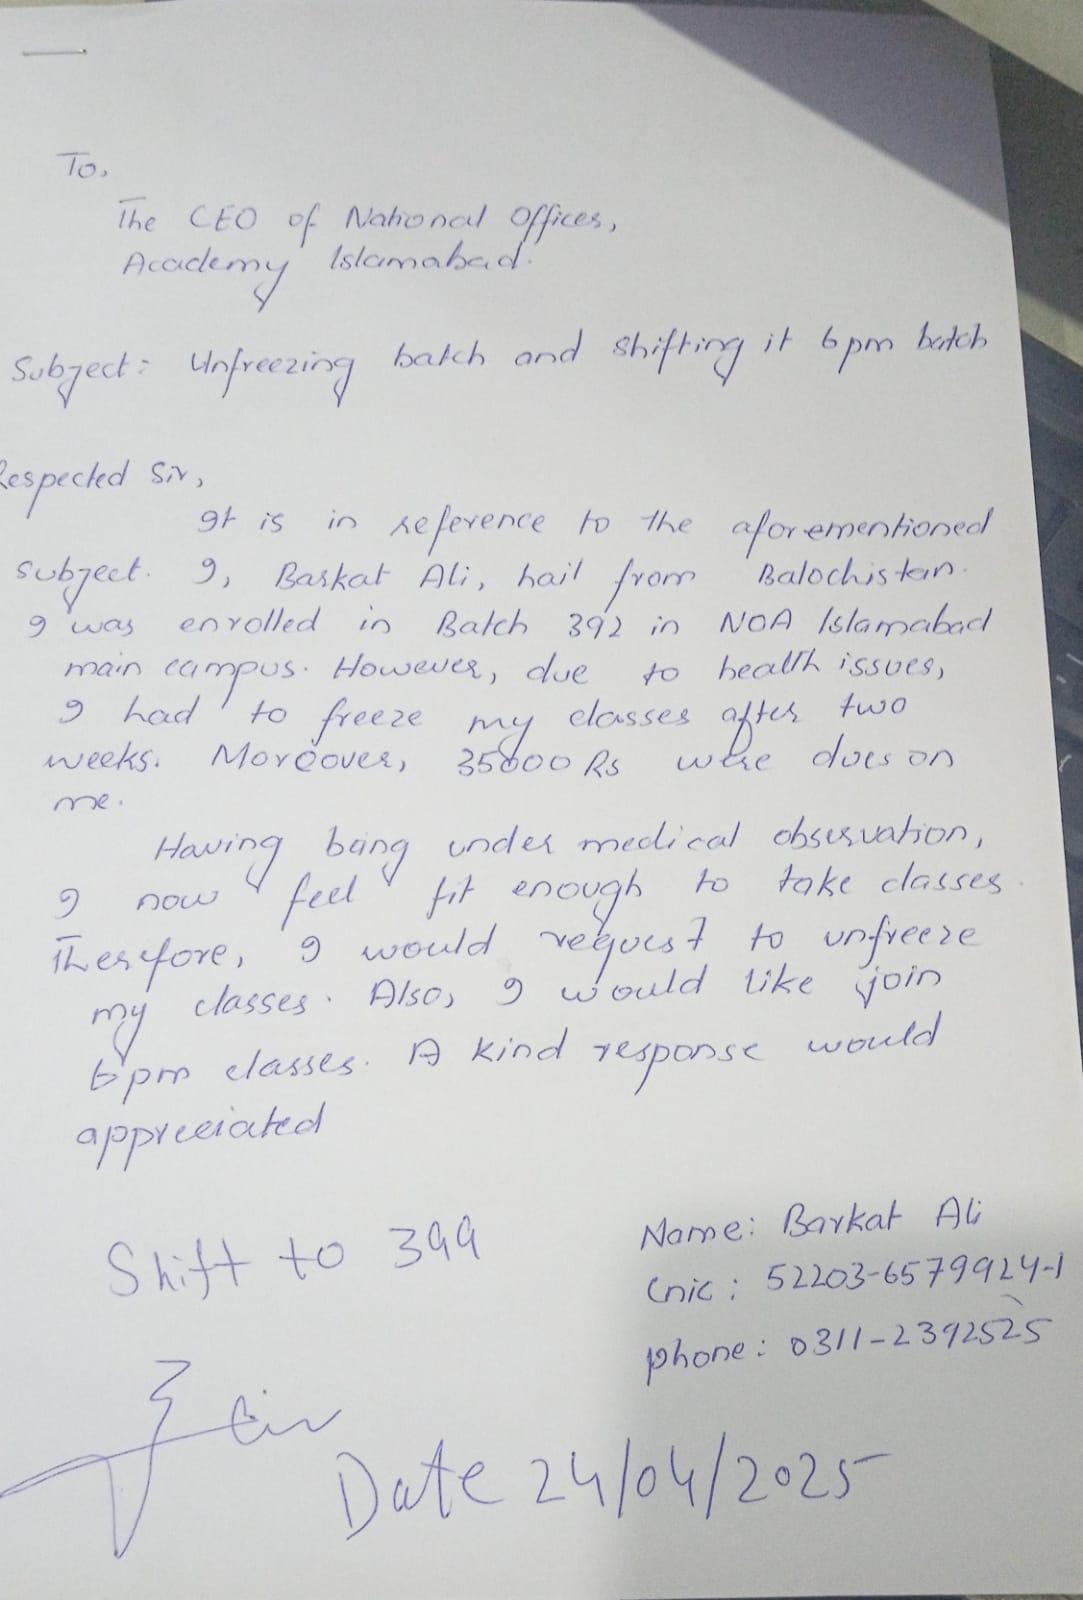 To,
The CEO of National Offices,
Academy Islamabad.
Subject: Unfreezing batch and shifting it 6pm batch
Respected Sir,
It is in reference to the aforementioned
subject. I, Barkat Ali, hail from Balochistan.
I was enrolled in Batch 392 in NOA Islamabad
main campus. However, due to health issues,
I had to freeze my classes after two
weeks. Moreover, 35000 Rs were dues on
me.
Having being under medical observation,
I now feel fit enough to take classes.
Therefore, I would request to unfreeze
my classes. Also, I would like join
6pm classes. A kind response would
appreciated
Shift to 399
Name: Barkat Ali
Cnic: 52203-6579924-1
phone: 0311-2392525
Date 24/04/2025